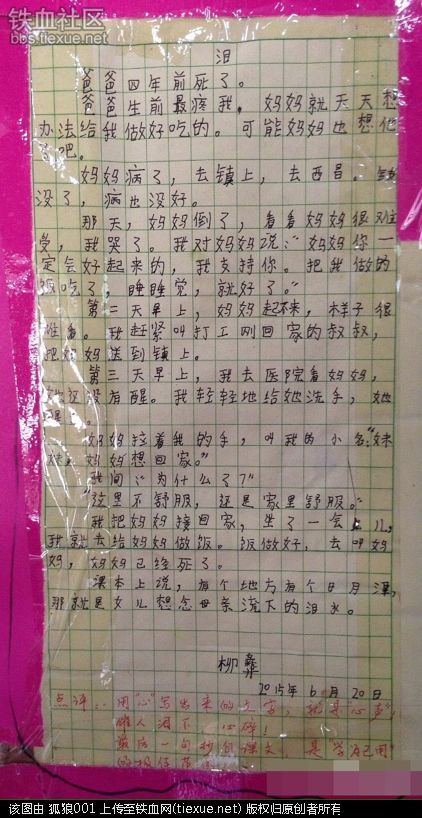 铁血社区
bbs.tiexue.net
泪
爸爸四年前死了。
爸爸生前最疼我。妈妈就天天想
办法给我做好吃的。可能妈妈也想他
了吧。
妈妈病了，去镇上，去西昌。钱
没了，病也没好。
那天，妈妈倒了，看着妈妈很难
受，我哭了。我对妈妈说：“妈妈你一
定会好起来的，我支持你。把我做的
饭吃了，睡睡觉，就好了。”
第二天早上，妈妈起不来，样子很
难看。我赶紧叫打工刚回家的叔叔，
把妈妈送到镇上。
第三天早上，我去医院看妈妈，
她还没有醒。我轻轻地给她洗手，她
醒了。
妈妈拉着我的手，叫我的小名：“妹
妹，妈妈想回家。”
我问：“为什么了？”
“这里不舒服，还是家里舒服。”
我把妈妈接回家，坐了一会儿，
我就去给妈妈做饭。饭做好，去叫妈
妈，妈妈已经死了。
课本上说，有个地方有个日月潭，
那就是女儿想念母亲流下的泪水。
柳彝
2015年6月20日
点评：用“心”写出来的文字，就是“心声”，
催人泪下 心碎！
最后一句妙自课文，是“学为己用”
的极佳范
该图由 狐狼001 上传至铁血网(tiexue.net) 版权归原创者所有